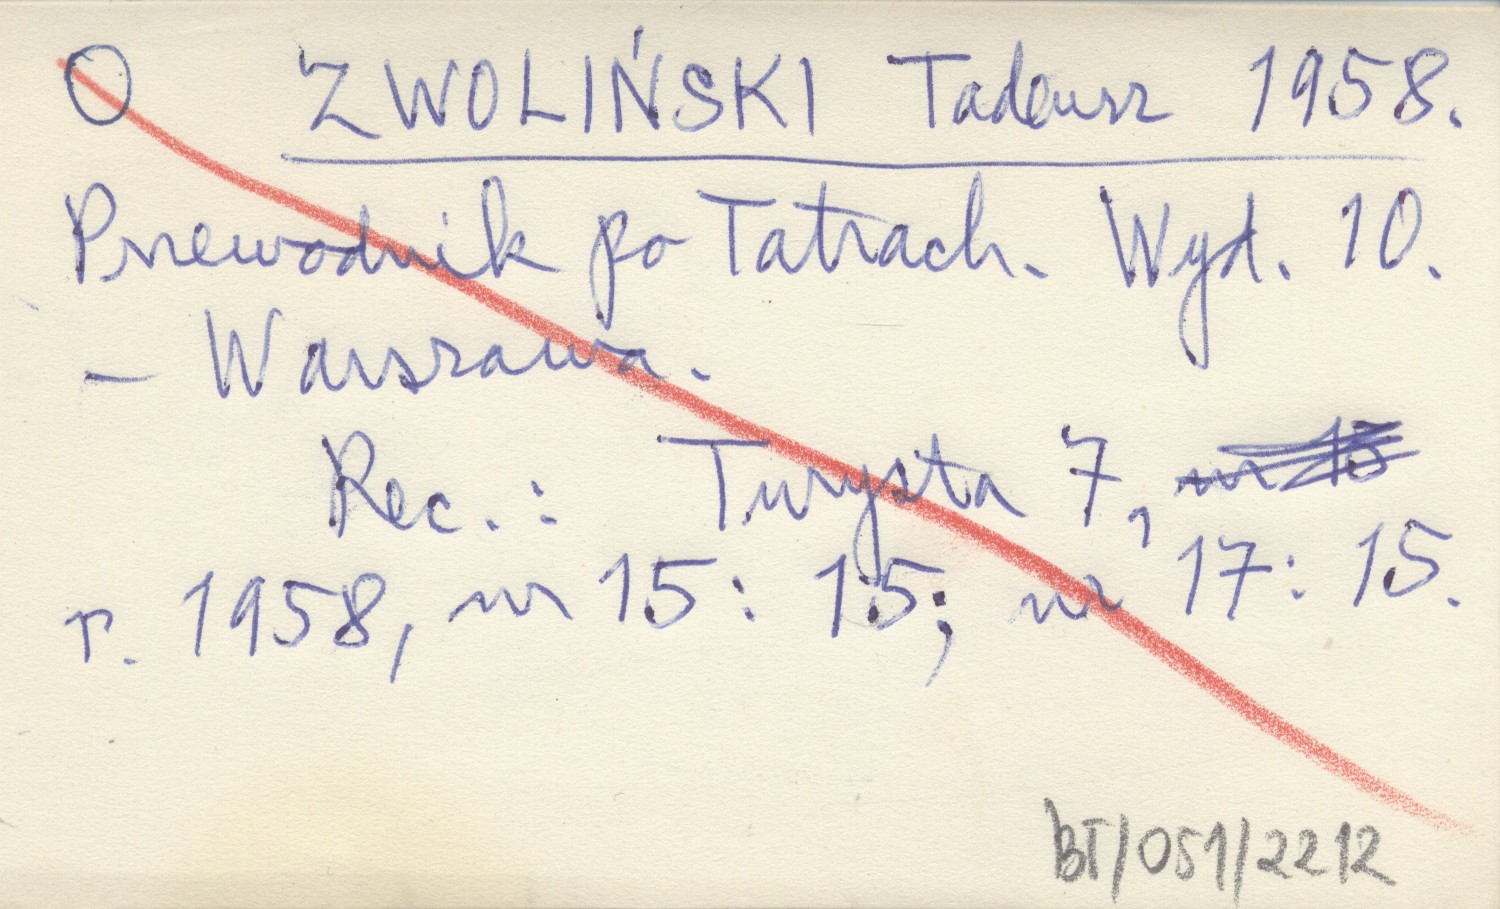 O ZWOLIŃSKI Tadeusz 1958.
Przewodnik po Tatrach. Wyd. 10.
– Warszawa.
Rec.: Turysta 7, nr 15
r. 1958, nr 15: 15; nr 17: 15.
BT/051/2212